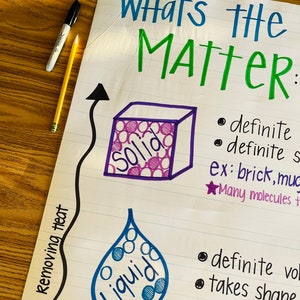 WHATS THE
MATTER:
Solid
definite
definite s
ex: brick, mud
Many molecules t
Removing Heat
Liquid
definite vol
takes shape